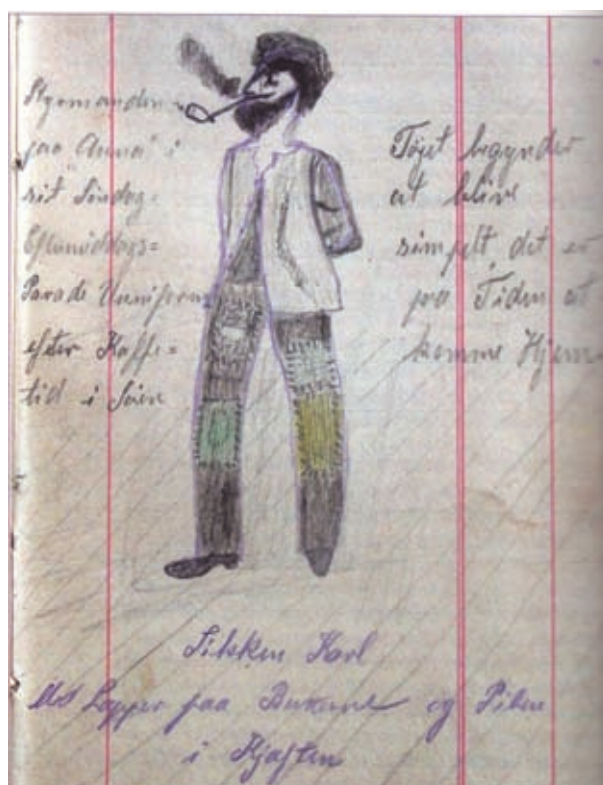 Styrmanden
paa "Anna" i
sit Søndag=
Eftermiddags=
Parade Uuniform
efter Kaffe=
tid i Søen
Tøjet begynder
at blive
simpelt, det er
paa Tiden at
komme Hjem
Karl
Med Lapper paa Buxerne og Piben
i Kjæften